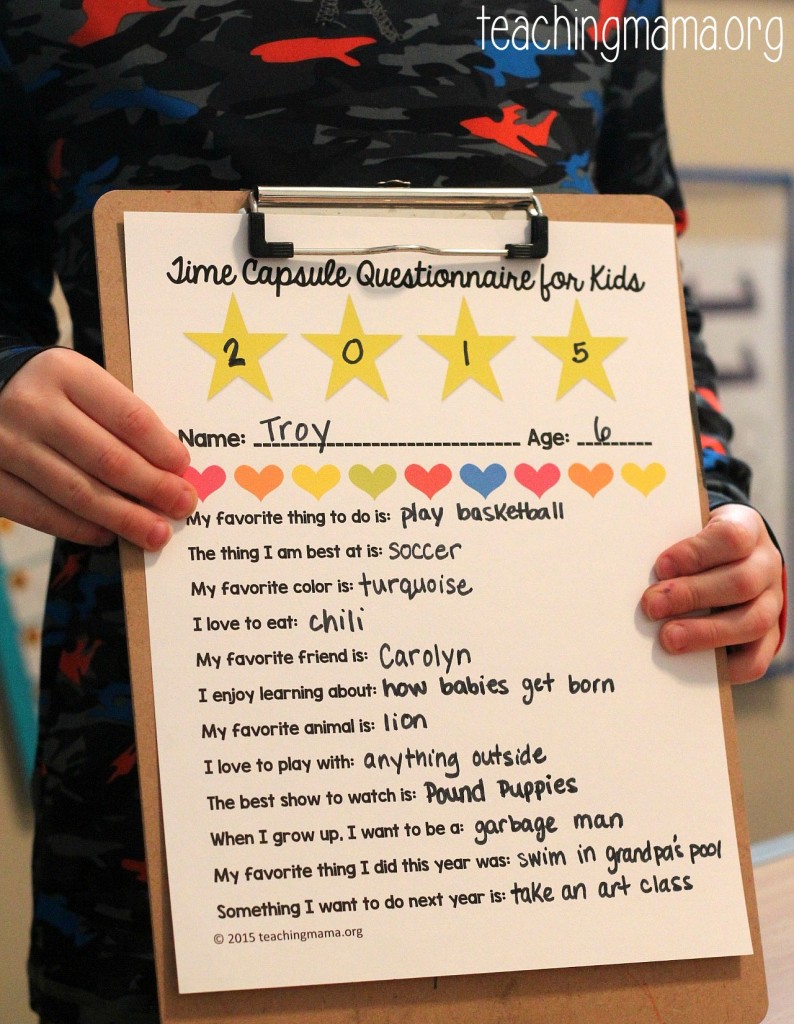 teachingmama.org
Time Capsule Questionnaire for Kids
2 0 1 5
Name: Troy Age: 6
My favorite thing to do is: play basketball
The thing I am best at is: soccer
My favorite color is: turquoise
I love to eat: chili
My favorite friend is: Carolyn
I enjoy learning about: how babies get born
My favorite animal is: lion
I love to play with: anything outside
The best show to watch is: Pound Puppies
When I grow up, I want to be a: garbage man
My favorite thing I did this year was: swim in grandpa's pool
Something I want to do next year is: take an art class
© 2015 teachingmama.org